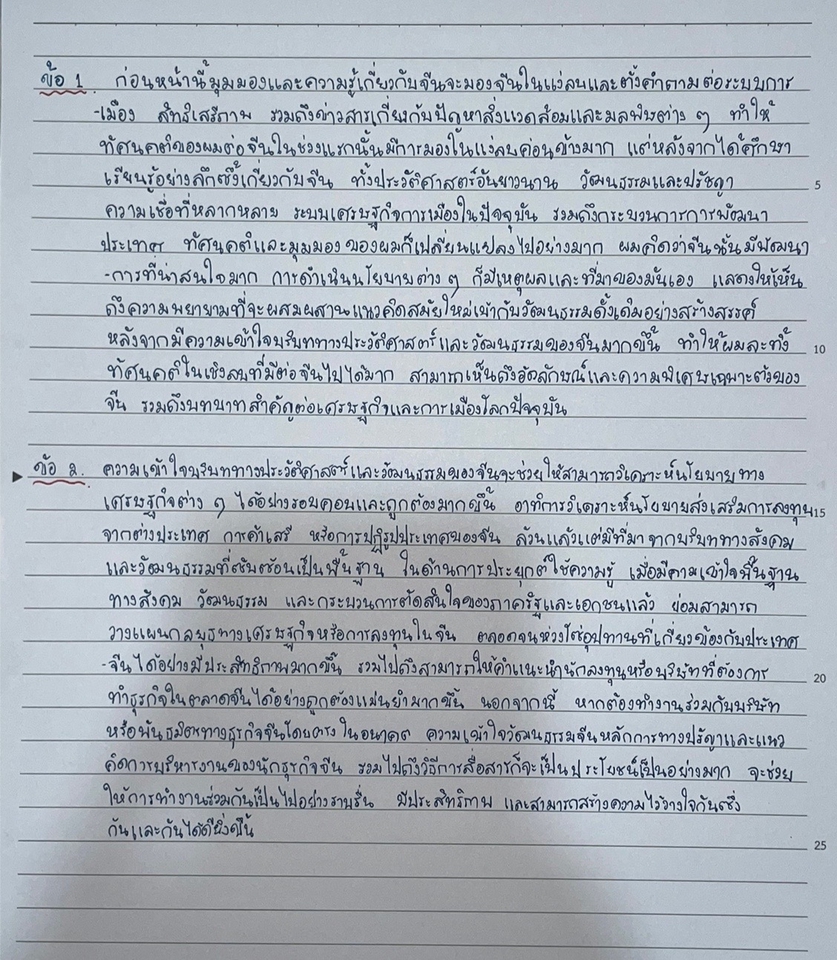 ข้อ 1. ก่อนหน้านี้มุมมองและความรู้เกี่ยวกับจีนจะมองจีนในแง่ลบและตั้งคำถามต่อระบบการ
-เมือง สิทธิเสรีภาพ รวมถึงข่าวสารเกี่ยวกับปัญหาสิ่งแวดล้อมและมลพิษต่าง ๆ ทำให้
ทัศนคติของผมต่อจีนในช่วงแรกนั้นมีการมองในแง่ลบค่อนข้างมาก แต่หลังจากได้ศึกษา
เรียนรู้อย่างลึกซึ้งเกี่ยวกับจีน ทั้งประวัติศาสตร์อันยาวนาน วัฒนธรรมและปรัชญา 5
ความเชื่อที่หลากหลาย ระบบเศรษฐกิจการเมืองในปัจจุบัน รวมถึงกระบวนการการพัฒนา
ประเทศ ทัศนคติและมุมมองของผมก็เปลี่ยนแปลงไปอย่างมาก ผมคิดว่าจีนนั้นมีพัฒนา
-การที่น่าสนใจมาก การดำเนินนโยบายต่าง ๆ ก็มีเหตุผลและที่มาของมันเอง แสดงให้เห็น
ถึงความพยายามที่จะผสมผสานแนวคิดสมัยใหม่เข้ากับวัฒนธรรมดั้งเดิมอย่างสร้างสรรค์
หลังจากมีความเข้าใจบริบททางประวัติศาสตร์และวัฒนธรรมของจีนมากขึ้น ทำให้ผมละทิ้ง 10
ทัศนคติในเชิงลบที่มีต่อจีนไปได้มาก สามารถเห็นถึงอัตลักษณ์และความพิเศษเฉพาะตัวของ
จีน รวมถึงบทบาทสำคัญต่อเศรษฐกิจและการเมืองโลกปัจจุบัน
ข้อ 2. ความเข้าใจบริบททางประวัติศาสตร์และวัฒนธรรมของจีนจะช่วยให้สามารถวิเคราะห์นโยบายทาง
เศรษฐกิจต่าง ๆ ได้อย่างรอบคอบและถูกต้องมากขึ้น อาทิการวิเคราะห์นโยบายส่งเสริมการลงทุน 15
จากต่างประเทศ การค้าเสรี หรือการปฏิรูปประเทศของจีน ล้วนแล้วแต่มีที่มาจากบริบททางสังคม
และวัฒนธรรมที่ซับซ้อนเป็นพื้นฐาน ในด้านการประยุกต์ใช้ความรู้ เมื่อมีความเข้าใจพื้นฐาน
ทางสังคม วัฒนธรรม และกระบวนการตัดสินใจของภาครัฐและเอกชนแล้ว ย่อมสามารถ
วางแผนกลยุทธทางเศรษฐกิจหรือการลงทุนในจีน ตลอดจนห่วงโซ่อุปทานที่เกี่ยวข้องกับประเทศ
-จีนได้อย่างมีประสิทธิภาพมากขึ้น รวมไปถึงสามารถให้คำแนะนำนักลงทุนหรือบริษัทที่ต้องการ 20
ทำธุรกิจในตลาดจีนได้อย่างถูกต้องแม่นยำมากขึ้น นอกจากนี้ หากต้องทำงานร่วมกับบริษัท
หรือพันธมิตรทางธุรกิจจีนโดยตรงในอนาคต ความเข้าใจวัฒนธรรมจีนหลักการทางปรัญาและแนว
คิดการบริหารงานของนักธุรกิจจีน รวมไปถึงวิธีการสื่อสารก็จะเป็นประโยชน์เป็นอย่างมาก จะช่วย
ให้การทำงานร่วมกันเป็นไปอย่างราบรื่น มีประสิทธิภาพ และสามารถสร้างความไว้วางใจกันซึ่ง
กันและกันได้ดียิ่งขึ้น 25